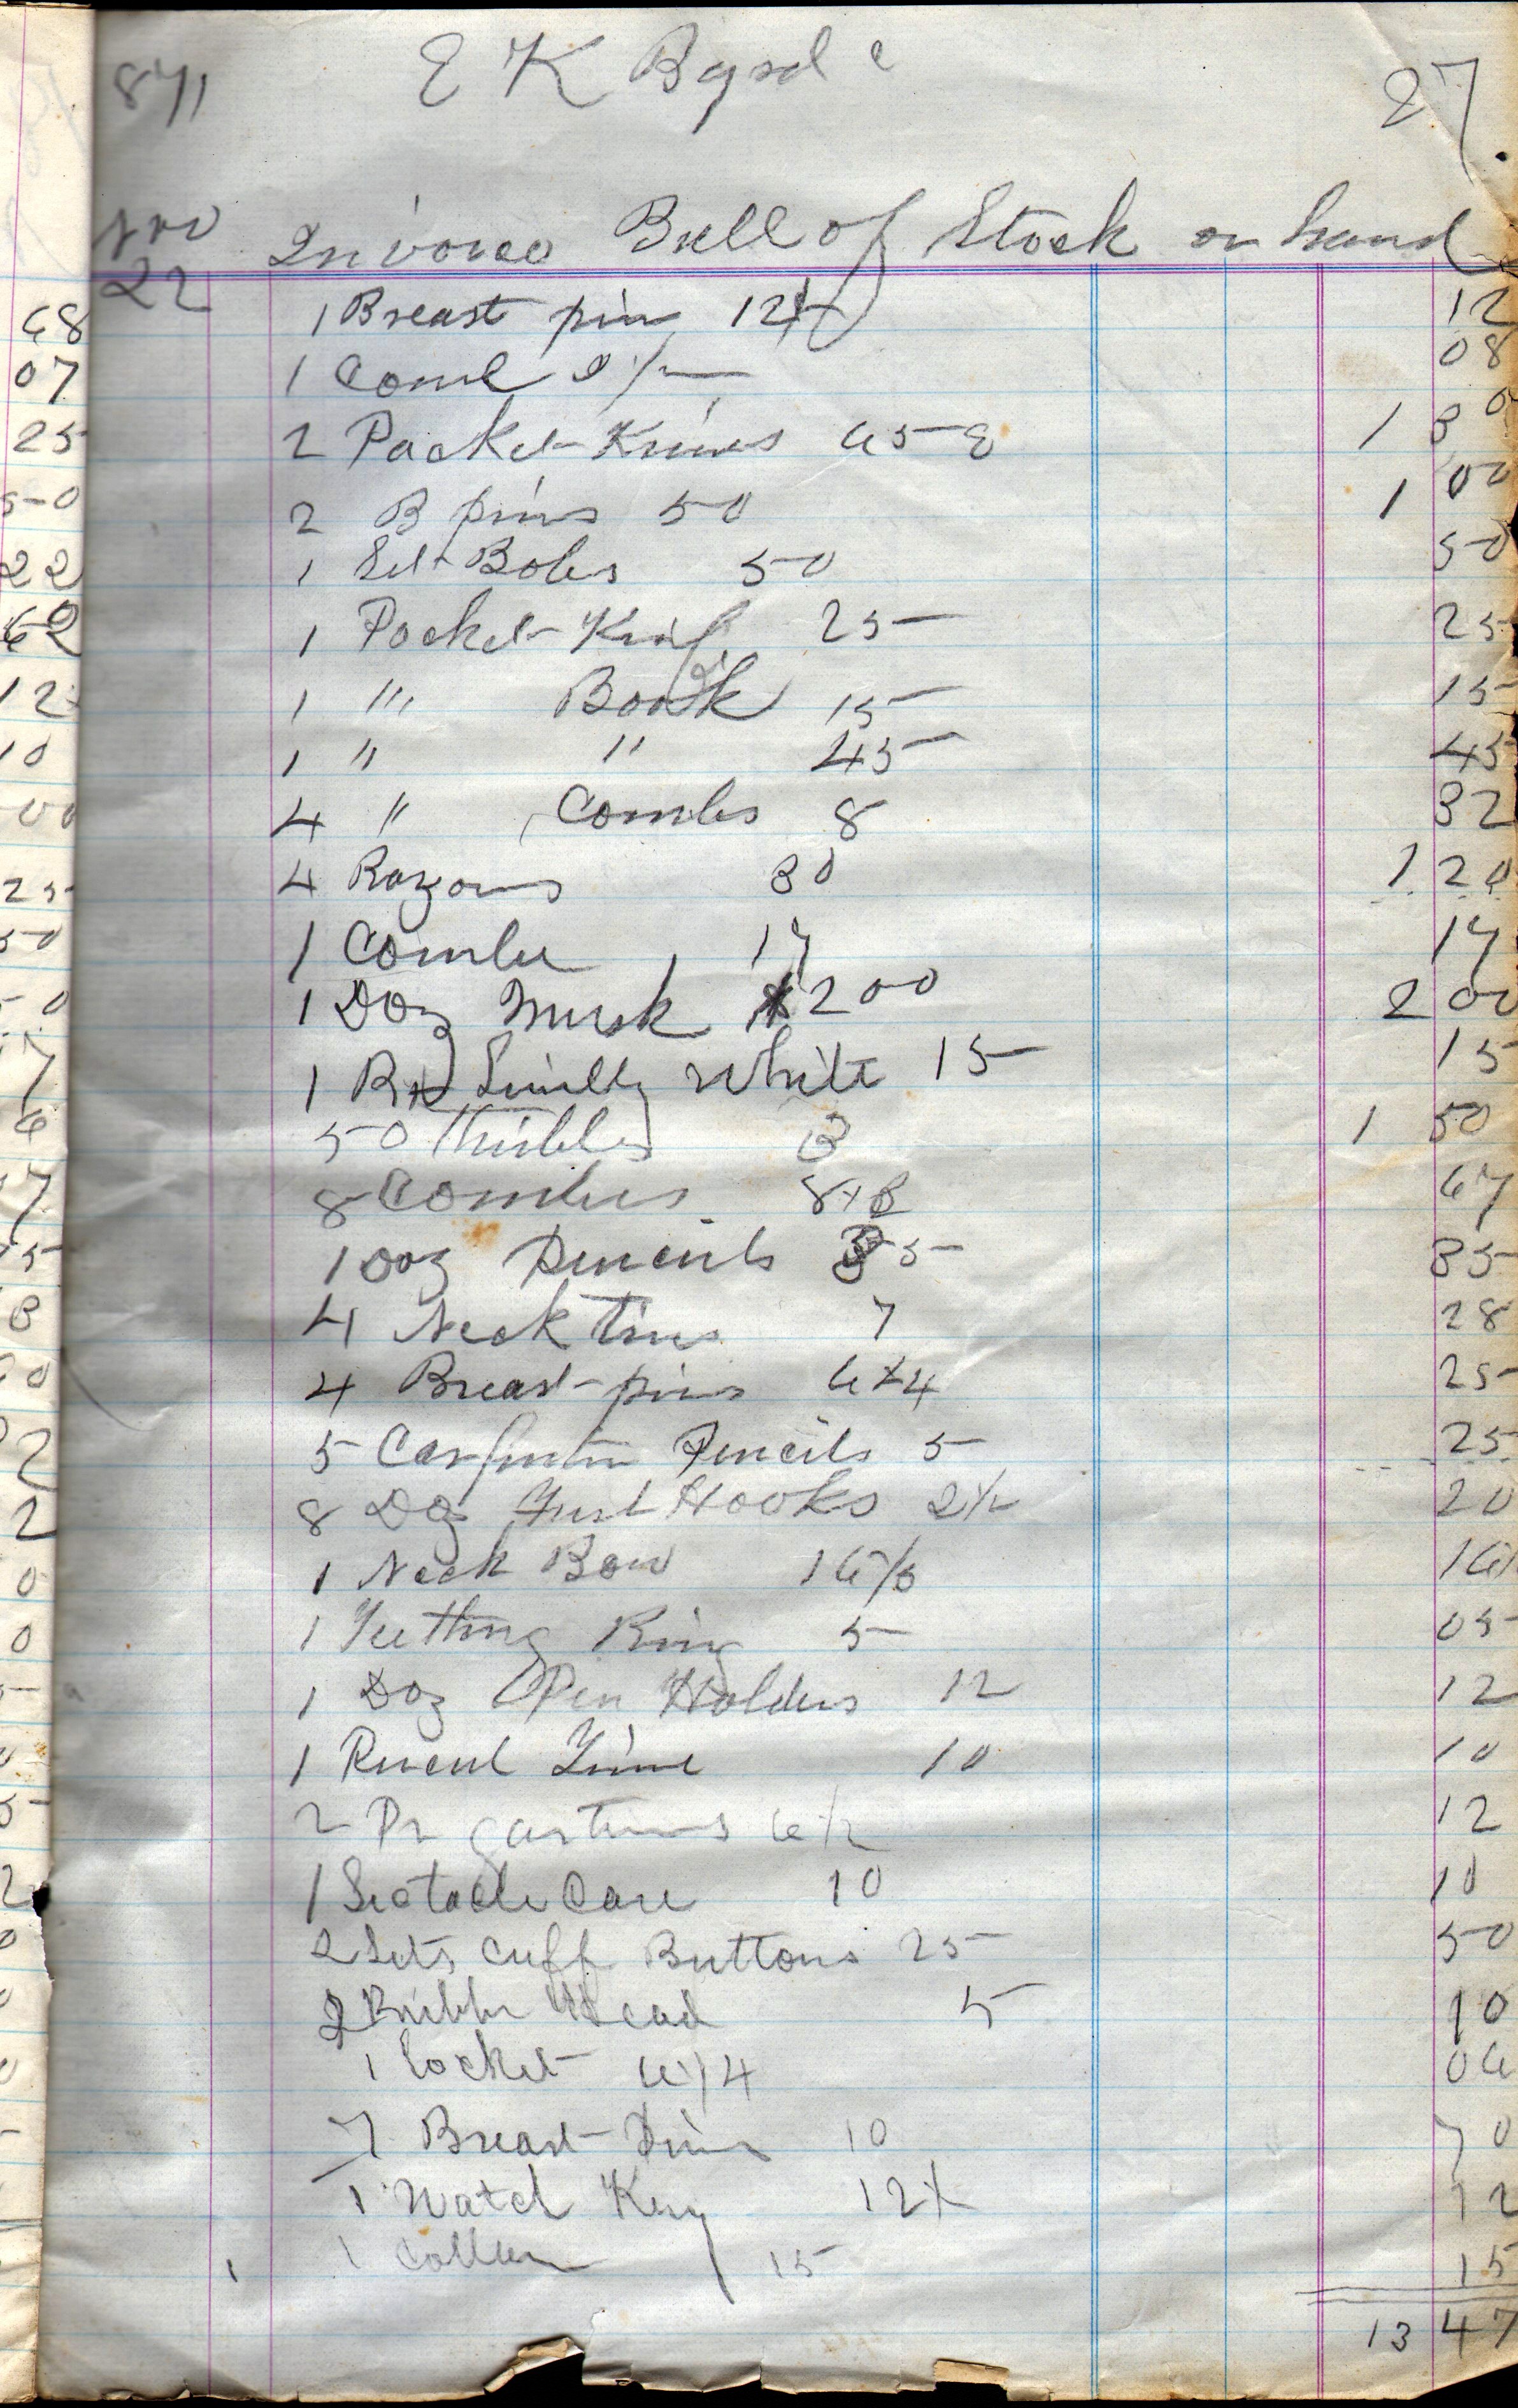 871 E K 27
Nov Invoice Bill of Stock on hand
22
1 Breast pin 12½ 12
1 Comb 8 08
2 Pocket Knives 65 c 1 30
2 B pins 50 1 00
1 Set Bobs 50 50
1 Pocket Knife 25 25
1 " Book 15 15
1 " " 45 45
4 " Combs 8 32
4 Razors 30 1 20
1 Combe 17 17
1 Doz Musk $2 00 2 00
1 Bx Lilly White 15 15
50 Thimbles 3 1 50
8 Combes 8 67
1 Doz Pencils 35 35
4 Neck Ties 7 28
4 Breast pins 6¼ 25
5 Carpenter Pencils 5 25
8 Doz Fish Hooks 2½ 20
1 Neck Bow 16 16
1 Teething Ring 5 05
1 Doz Pen Holders 12 12
1 10 10
2 Pr garters 6½ 12
1 Sectacle Case 10 10
2 Sets Cuff Buttons 25 50
2 Rubber Head 5 10
1 Locket 6¼ 06
7 Breast Pins 10 70
1 Watch Key 12½ 12
1 Coller 15 15
13 47
68
07
25
50
22
62
12
10
00
25
50